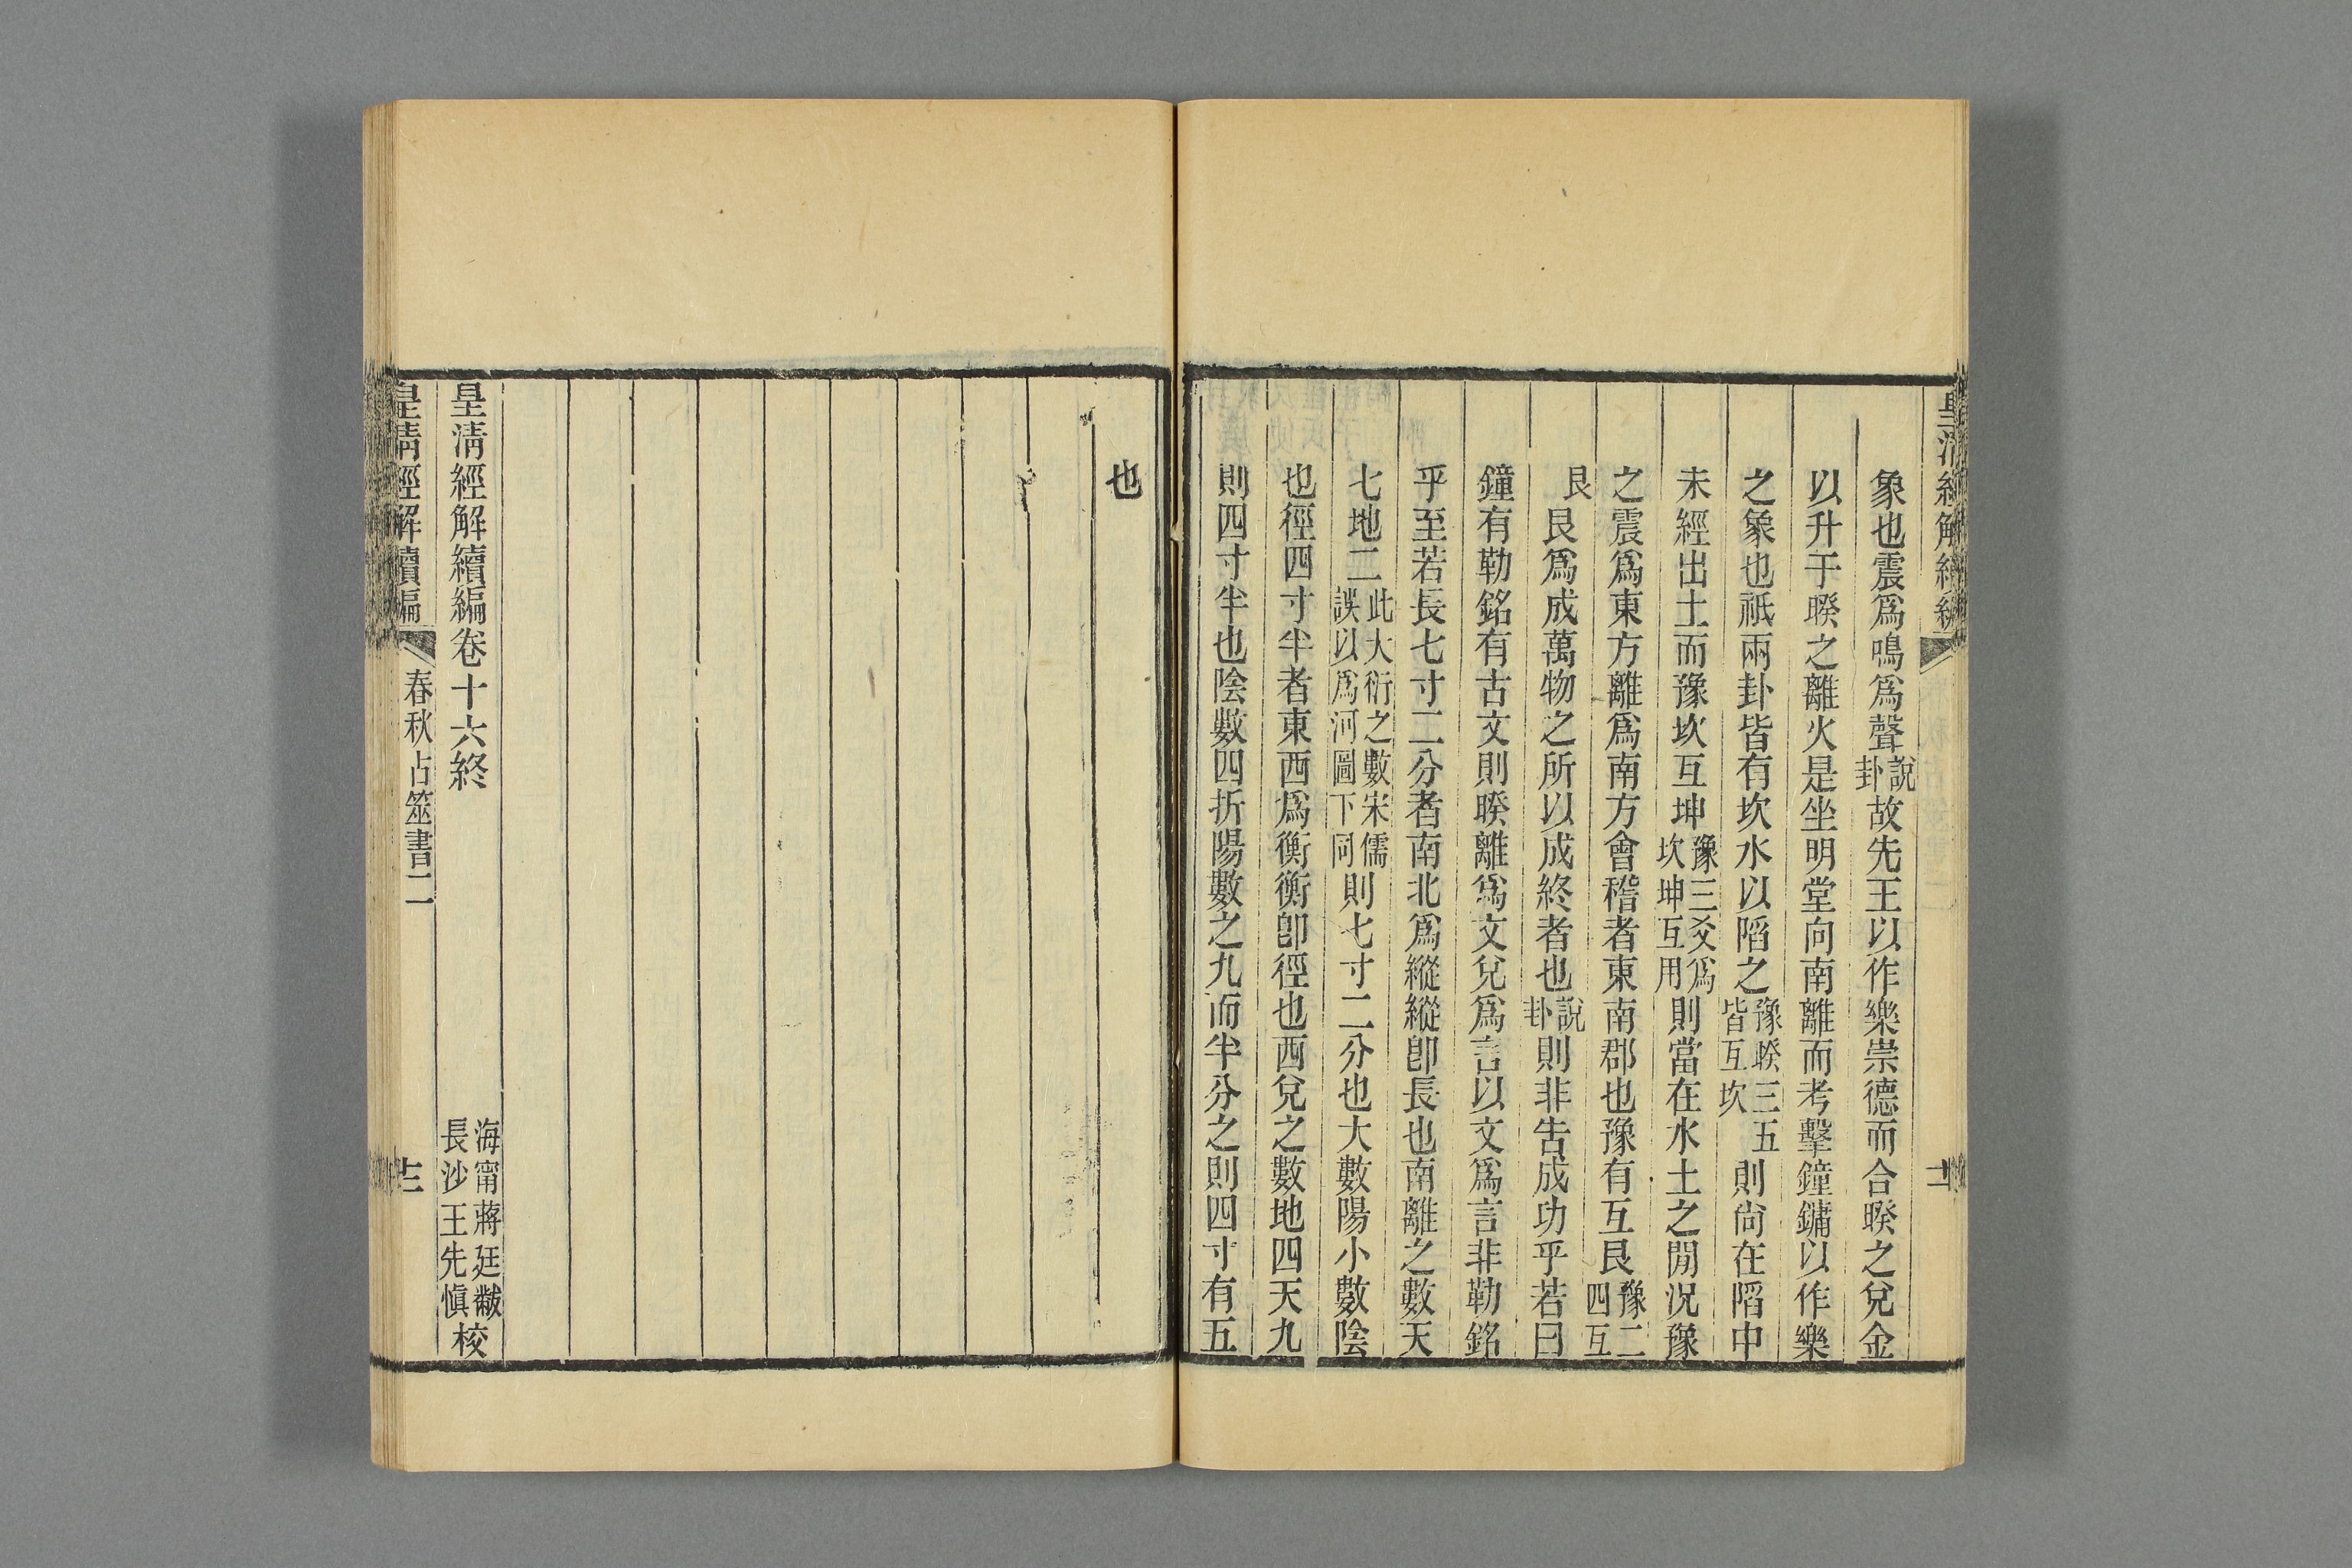 皇清經解續編
象也震爲鳴爲聲說卦故先王以作樂崇德而合睽之兌金
以升于睽之離火是坐明堂向南離而考擊鐘鏞以作樂
之象也祇兩卦皆有坎水以陷之豫睽三五皆互坎則尙在陷中
未經出土而豫坎互坤豫三爻爲坎坤互用則當在水土之閒況豫
之震爲東方離爲南方會稽者東南郡也豫有互艮豫二四互
艮艮爲成萬物之所以成終者也說卦則非吿成功乎若曰
鐘有勒銘有古文則睽離爲文兌爲言以文爲言非勒銘
乎至若長七寸二分者南北爲縱縱卽長也南離之數天
七地二此大衍之數宋儒誤以爲河圖下同則七寸二分也大數陽小數陰
也徑四寸半者東西爲衡衡卽徑也西兌之數地四天九
則四寸半也陰數四折陽數之九而半分之則四寸有五
也
皇清經解續編卷十六終
海甯蔣廷黻長沙王先愼校
皇清經解續編
春秋占筮書二